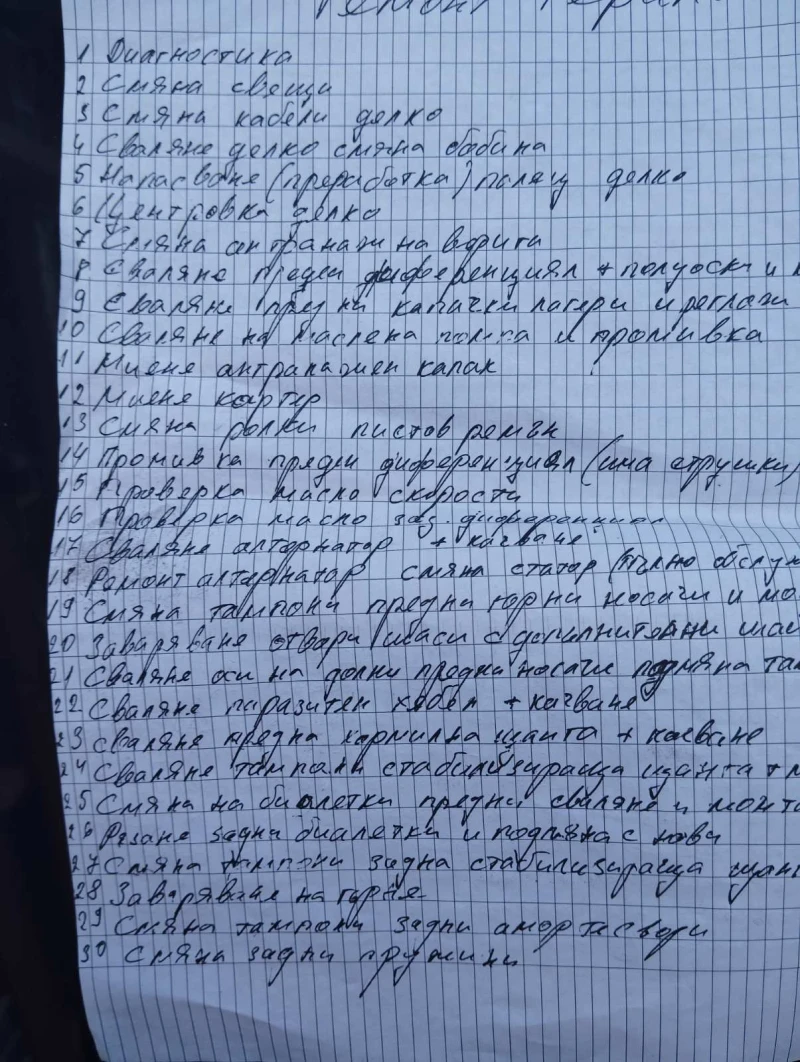 Ремонт Теран
1 Диагностика
2 Смяна свещи
3 Смяна кабели делко
4 Сваляне делко смяна бобина
5 Напасване (преработка) палец делко
6 Центровка делко
7 Смяна антранаж на верига
8 Сваляне преден диференциял + полуоски и
9 Сваляне предни капачки лагери и реглаж
10 Сваляне на маслена помпа и промивка
11 Миене антранажен капак
12 Миене картер
13 Смяна ролки пистов ремък
14 Промивка преден диференциял (има стружки)
15 Проверка масло скорости
16 Проверка масло зад. диференциял
17 Сваляне алтернатор + качване
18 Ремонт алтернатор смяна статор (пълно обслуж
19 Смяна тампони предни горни носачи и мо
20 Заваряване отвори шаси с допълнителни шай
21 Сваляне оси на долни предни носачи подмяна там
22 Сваляне паразитен хебел + качване
23 Сваляне предна кормилна щанга + качване
24 Сваляне тампани стабилизираща щанга + м
25 Смяна на биалетки предни сваляне и монта
26 Рязане задни биалетки и подмяна с нови
27 Смяна тампони задна стабилизираща щанг
28 Заваряване на горне
29 Смяна тампони задни амортесвори
30 Смяна задни пружини